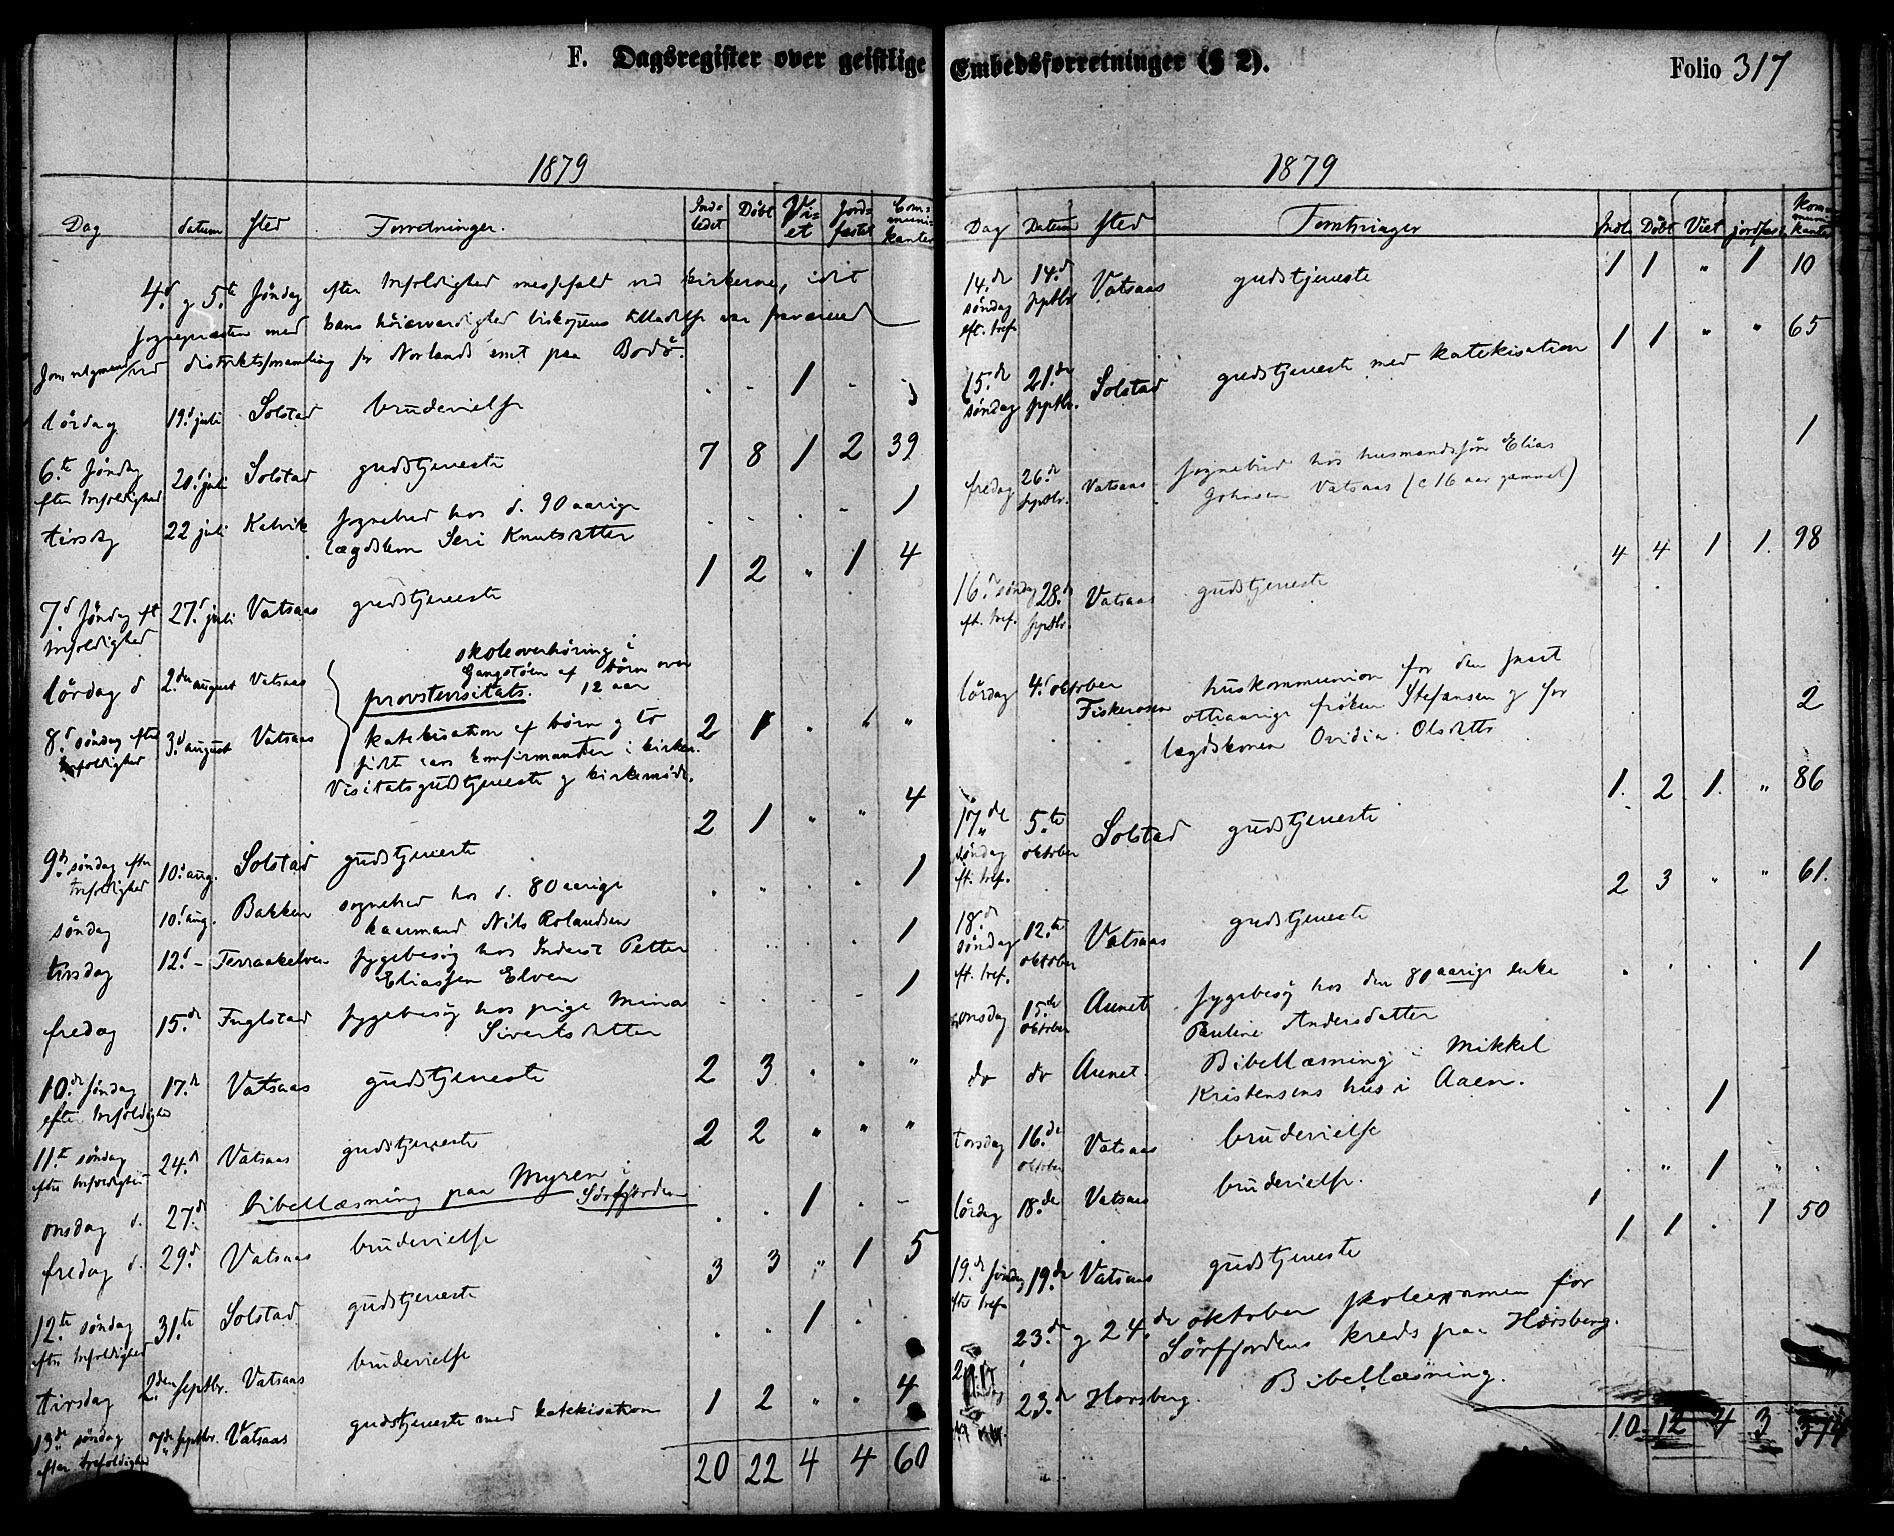 F. Dagsregister over geistlige Embedsforretninger (§ 2).
Folio 317
1879
Dag datum Sted Forretninger. Ind-ledet Døbt Vi-et Jord-fæstet Com-muni-kanter
4.d og 5.te Søndag efter trefoldighed messefald ved kirkerne, idet
sognepræsten med hans høiærværdighed biskopens tilladelse var fraværende
som ved distriktsforsamling for Norlands amt paa Bodø.
lördag 19.d juli Solstad brudevielse . . 1 . .
6.te Søndag efter trefoldighed 20.d juli Solstad gudstjeneste 7 8 1 2 39
tirsdag 22 juli Kalvik sognebud hos d. 90 aarige . . . . 1
lægdslem Seri Knutsdatter
7.d Søndag eft trefoldighed 27.d juli Vatsaas gudstjeneste 1 2 " 1 4
lördag d 2.den august Vatsaas provstevisitats. skoleoverhøring i
Gangstøen af børn over
12 aar
8.d søndag efter trefoldighed 3.d august Vatsaas katekisation af børn og to 2 1 " "
sidste aars konfirmander i kirken.
Visitatsgudstjeneste og kirkemøde.
9.de søndag efter trefoldighed 10.d aug. Solstad gudstjeneste 2 1 " " 4
søndag 10.d aug. Bakken sognebud hos d. 80 aarige . " . . 1
kaarmand Nils Rolandsen
tirsdag 12.d - Terraakelven sygebesøg hos Inderst Petter . . . . 1
Eliassen Elven
fredag 15.de Fuglstad sygebesøg hos pige Mina . . . . 1
Sivertsdatter
10.de søndag efter trefoldighed 17.de Vatsaas gudstjeneste 2 3 " " "
11.te søndag efter trefoldighed 24.d Vatsaas gudstjeneste 2 2 " " "
onsdag d. 27.d bibellæsning paa Myren i
Sörfjorden
fredag d. 29.d Vatsaas brudevielse . . 1 . -
12.te søndag efter trefoldighed 31.te Solstad gudstjeneste 3 3 " 1 5
tirsdag 2.den septbr. Vatsaas brudevielse . . 1 . .
13.de søndag efter trefoldighed 7.de septbr. Vatsaas gudstjeneste med katekisation 1 2 " " 4
20 22 4 4 60
1879
Dag Datum Sted Forretninger Indl. Døbt Viet jordfæst. Kom-muni-kanter
14.de søndag eft. tref. 14.d septbr Vatsaas gudstjeneste 1 1 " 1 10
15.de søndag 21.de septbr. Solstad gudstjeneste med katekisation 1 1 " " 65
fredag 26.de septbr. Vatsaas sognebud hos husmandssøn Elias 1
Johnsen Vatsaas (c 16 aar gammel)
16.d søndag eft. tref. 28.de septbr. Vatsaas gudstjeneste 4 4 1 1. 98
lördag 4.d oktober Fiskerosen huskommunion for den snart
ottiaarige frøken Stefansen og for 2
lægdskonen Ovidia Olsdatter
17.de søndag eft. tref. 5.te oktober Solstad gudstjeneste 1. 2 1. " 86
18.de søndag eft. tref. 12.te oktober Vatsaas gudstjeneste 2 3 " " 61.
onsdag 15.de oktober Aunet sygebesøg hos den 80 aarige enke . . . . 1
Pauline Andersdatter
do do Aunet. Bibellæsning i Mikkel
Kristensens hus i Aaen.
torsdag 16.de oktober Vatsaas brudevielse . . 1
lördag 18.de Vatsaas brudevielse. . " 1 " .
19.de søndag efter tref. 19.de Vatsaas gudstjeneste 1 1 . 1 50
23.de og 24.de oktober skoleexamen for
Sörfjordens kreds paa Horsberg.
23.de Horsberg. Bibellæsning.
10 12 4 3 374